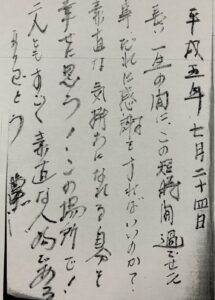 平成五年 七月二十四日
長い一生の間に、この短時間過ごせた
事だれに感謝をすればいいのか?
素直な気持ちになれる自分を
幸せに思う!この場所で!
二人ともすごく素直な人間である
ありがとう